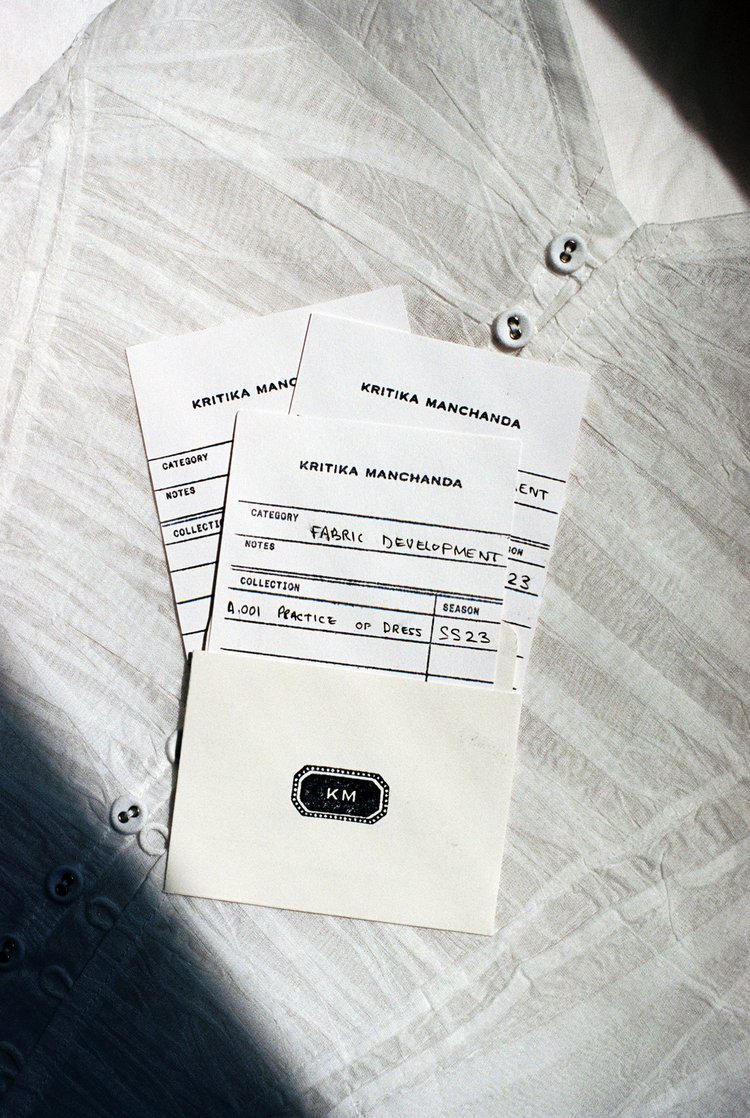 KRITIKA MANC
CATEGORY
NOTES
COLLECTI
KRITIKA MANCHANDA
ENT
ON
23
KRITIKA MANCHANDA
CATEGORY FABRIC DEVELOPMENT
NOTES
COLLECTION SEASON
A.001 PRACTICE OF DRESS SS23
KM